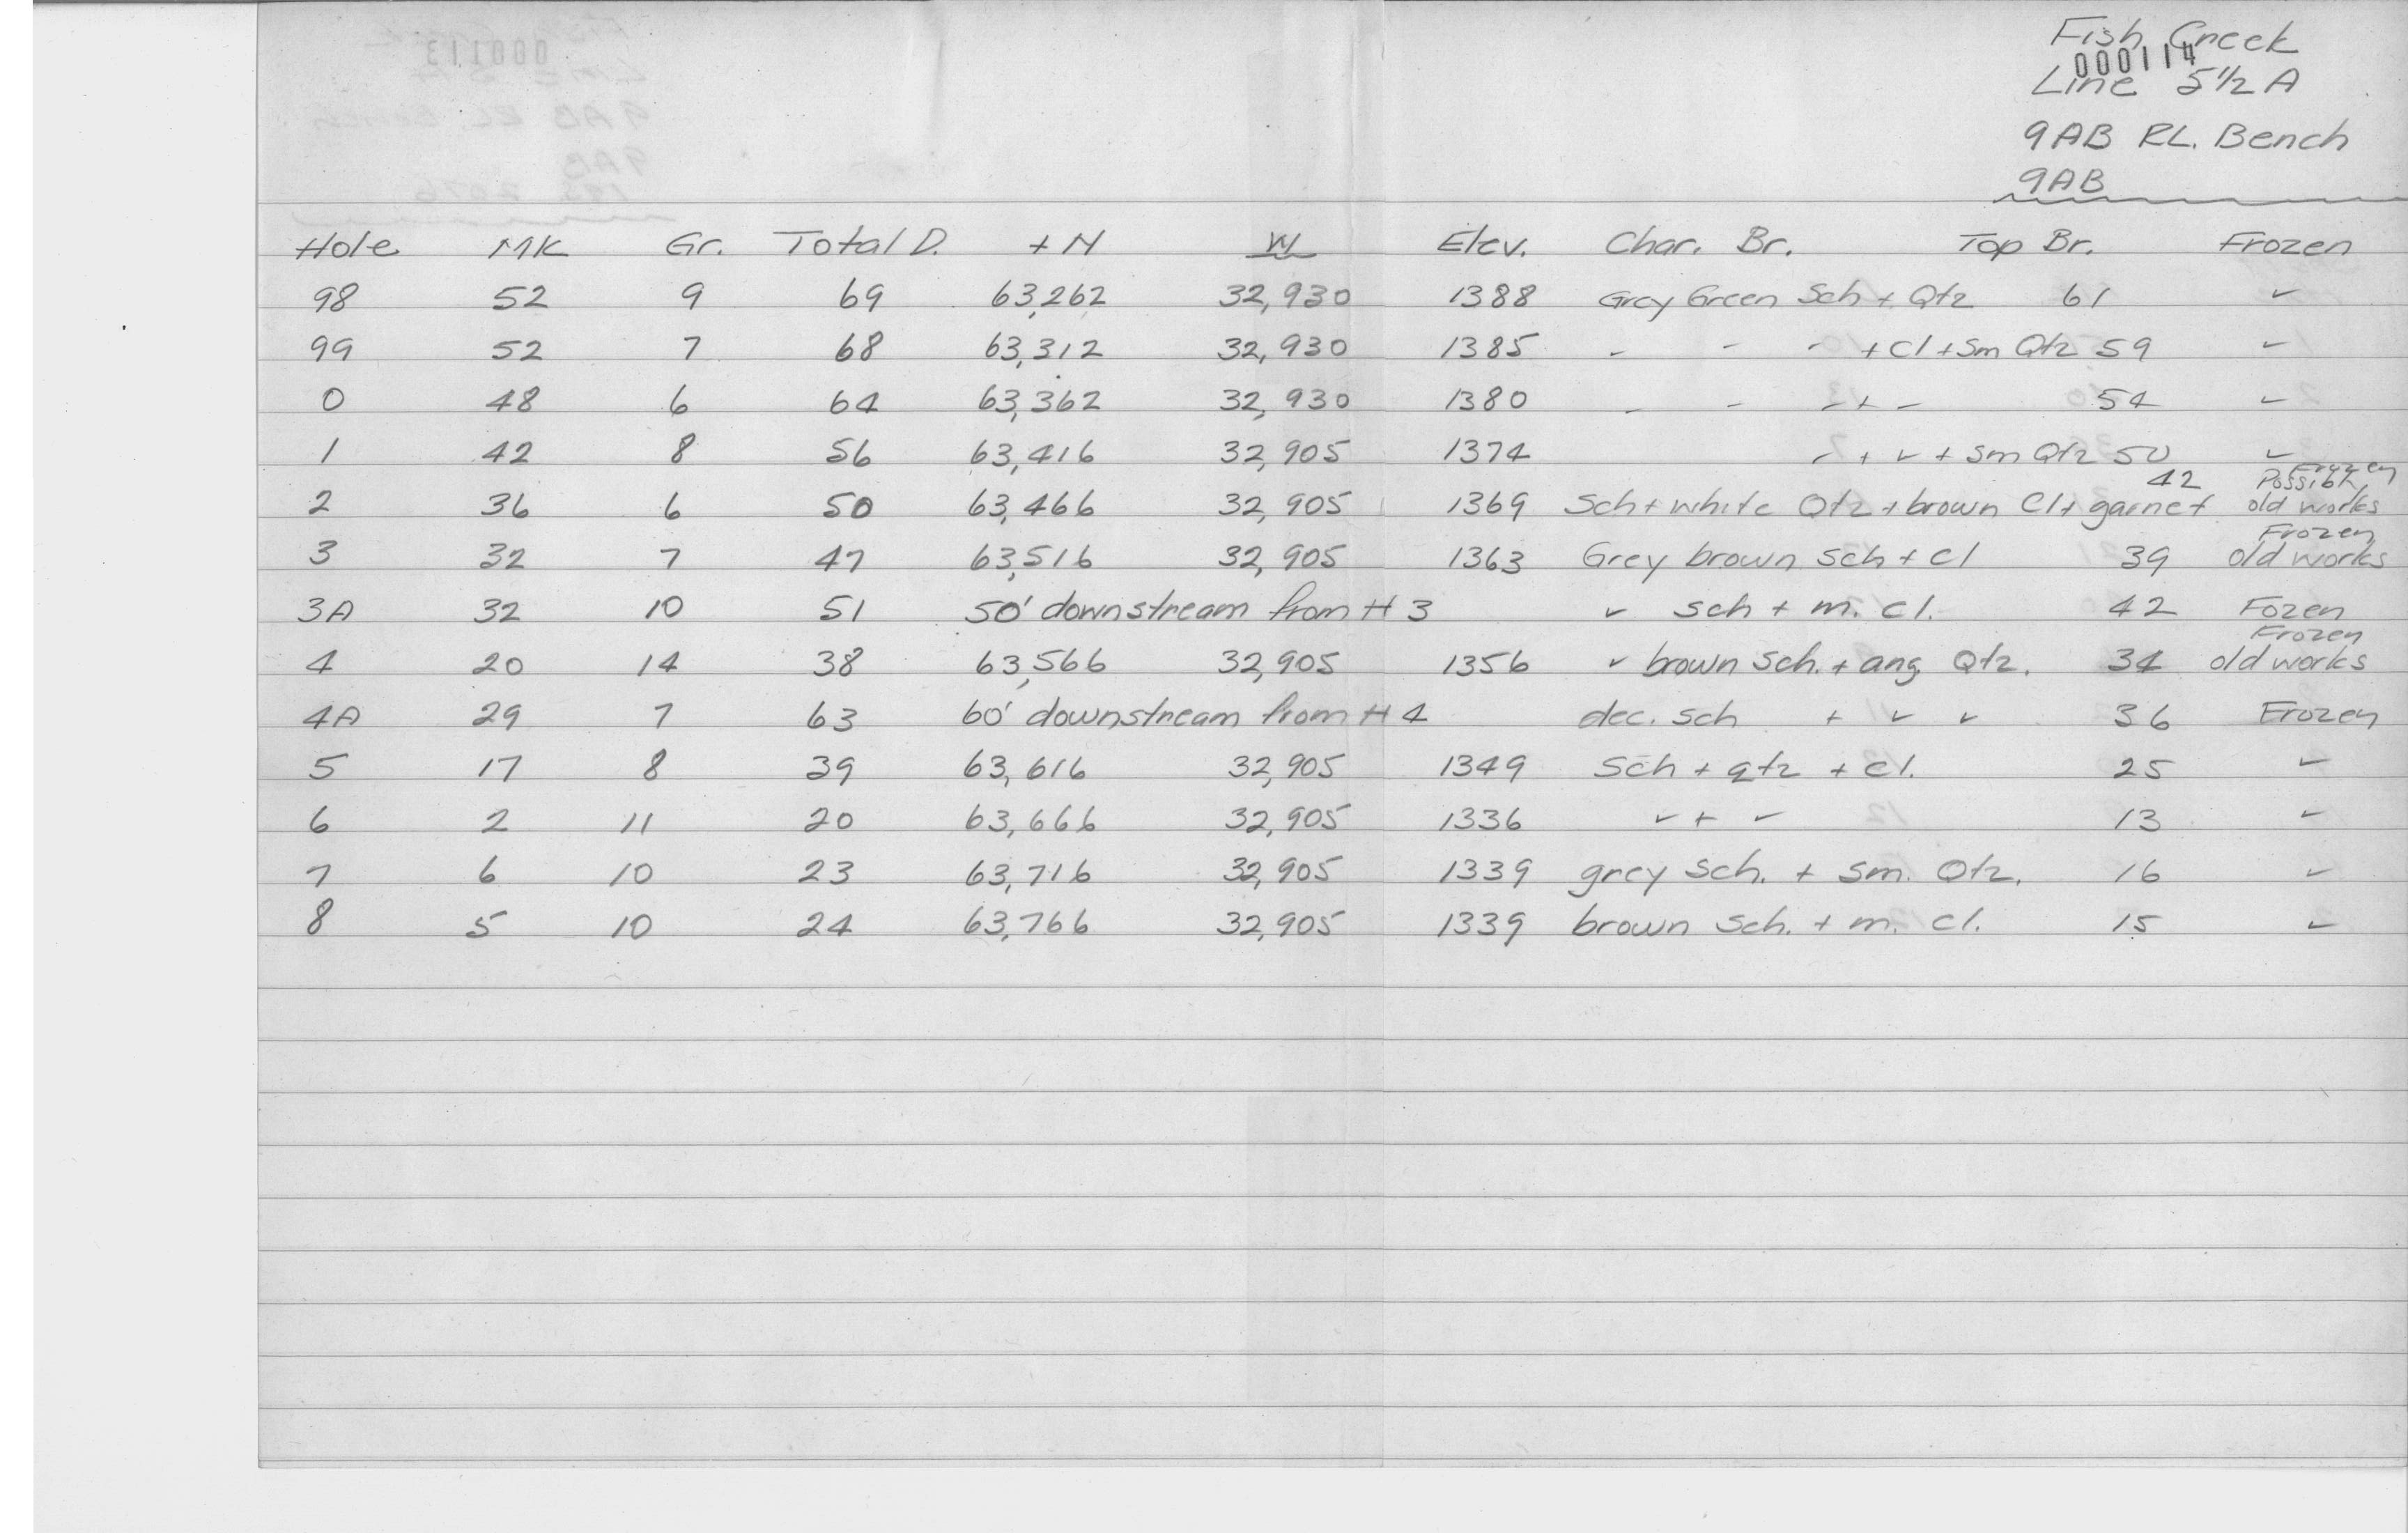 Fish Creek
000114
Line 5½ A
9AB RL. Bench
9AB
Hole MK Gr. Total D. + N W Elev. Char. Br. Top Br. Frozen
98 52 9 69 63,262 32,930 1388 Grey Green Sch + Qtz 61 ✓
99 52 7 68 63,312 32,930 1385 - - - + Cl + Sm Qtz 59 ✓
0 48 6 64 63,362 32,930 1380 - - - + - 54 ✓
1 42 8 56 63,416 32,905 1374 - + ✓ + Sm Qtz 50 ✓
2 36 6 50 63,466 32,905 1369 Sch + white Qtz + brown Cl + garnet 42 Frozen Possibly old works
3 32 7 47 63,516 32,905 1363 Grey brown Sch + cl 39 Frozen old works
3A 32 10 51 50' downstream from H 3 ✓ sch + m. cl. 42 Fozen
4 20 14 38 63,566 32,905 1356 ✓ brown Sch. + ang Qtz. 34 Frozen old works
4A 29 7 63 60' downstream from H 4 dec. sch + ✓ ✓ 36 Frozen
5 17 8 39 63,616 32,905 1349 Sch + qtz + cl. 25 ✓
6 2 11 20 63,666 32,905 1336 ✓ + ✓ 13 ✓
7 6 10 23 63,716 32,905 1339 grey Sch. + Sm. Qtz. 16 ✓
8 5 10 24 63,766 32,905 1339 brown Sch. + m. cl. 15 ✓